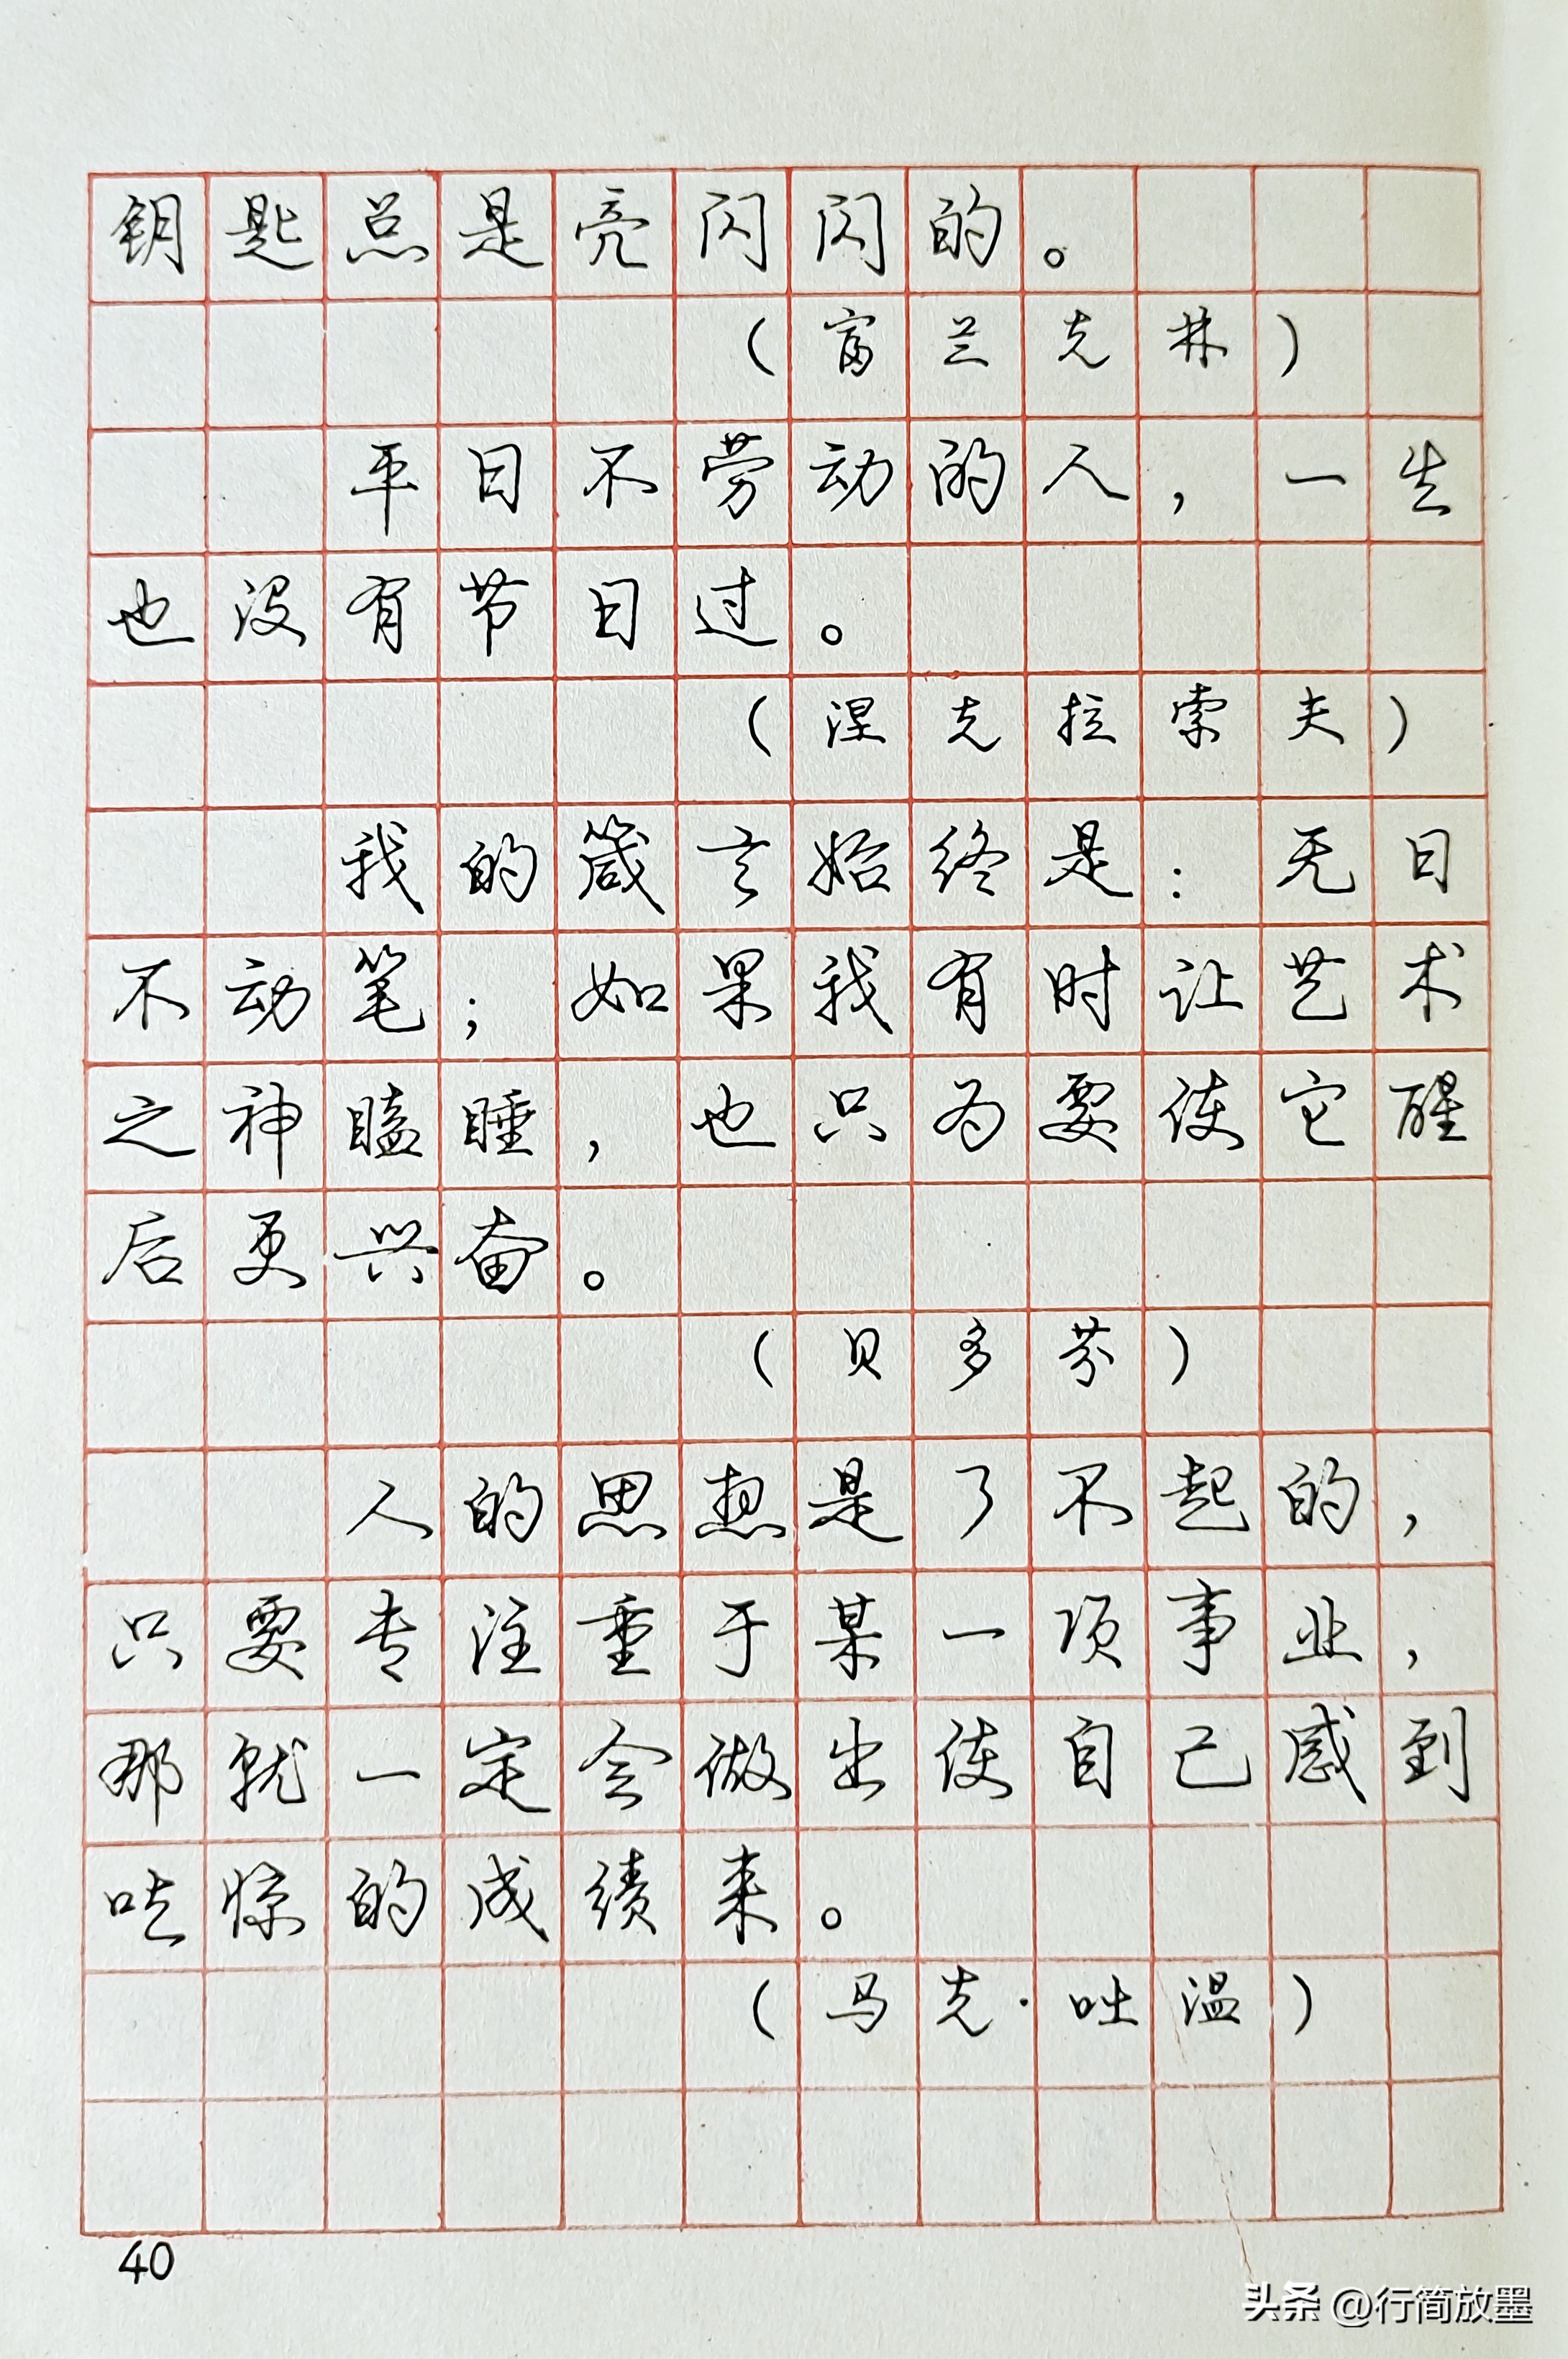 钥匙总是亮闪闪的。
(富兰克林)
平日不劳动的人,一生
也没有节日过。
(涅克拉索夫)
我的箴言始终是:无日
不动笔;如果我有时让艺术
之神瞌睡,也只为要使它醒
后更兴奋。
(贝多芬)
人的思想是了不起的,
只要专注重于某一项事业,
那就一定会做出使自己感到
吃惊的成绩来。
(马克·吐温)
40
头条 @行简放墨